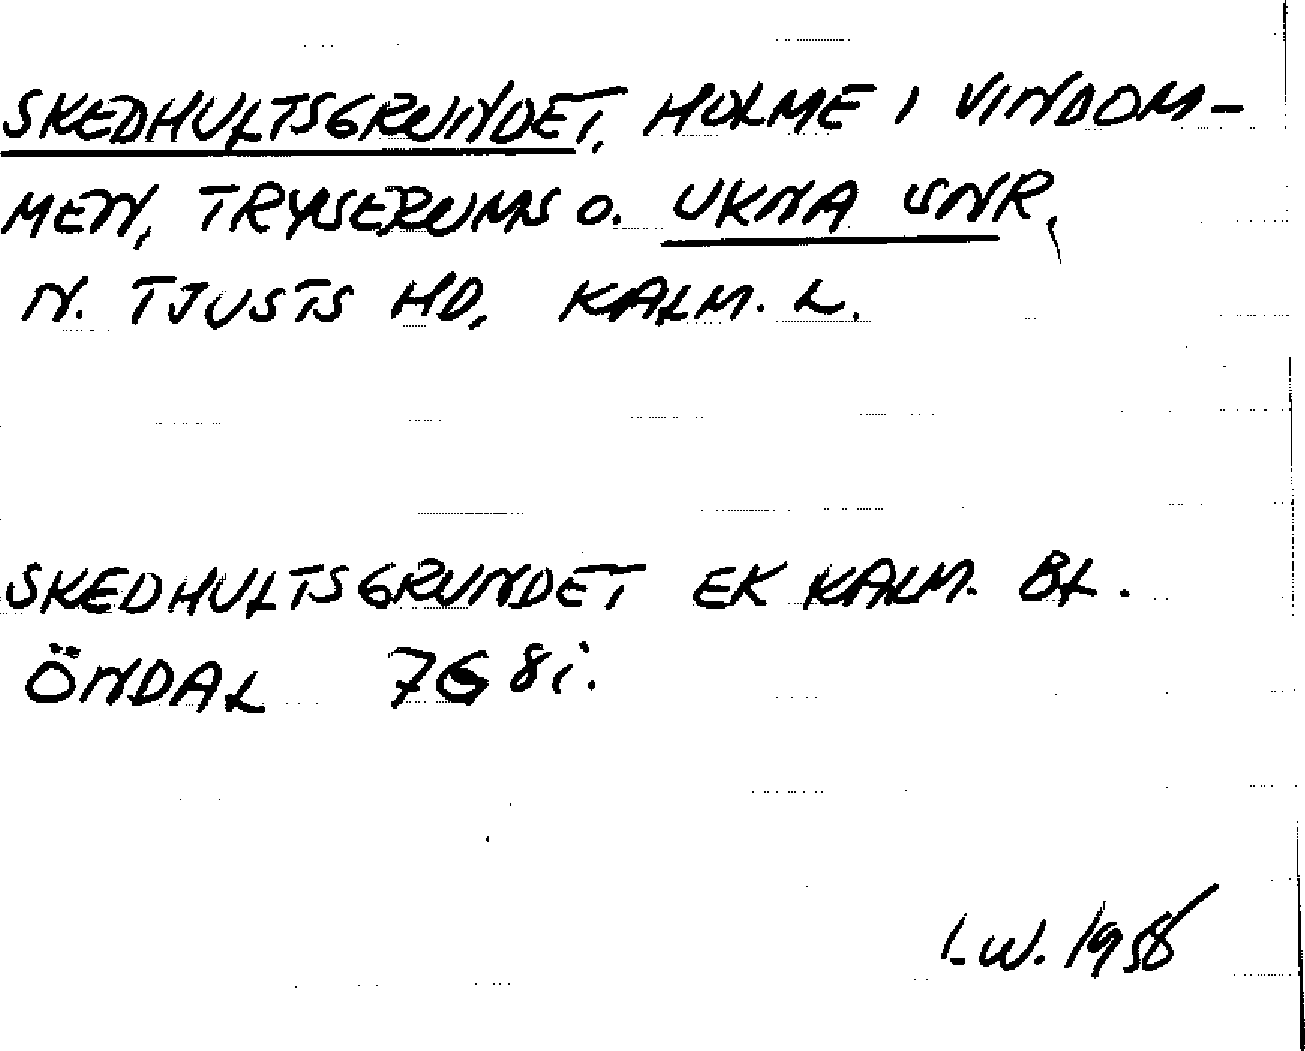 SKEDHULTSGRUNDET, HOLME I VINDOM-
MEN, TRYSERUMS O. UKNA SNR,
N. TJUSTS HD, KALM. L.
SKEDHULTSGRUNDET EK KALM. BL.
ÖNDAL 7G 8i.
L.W. 1958